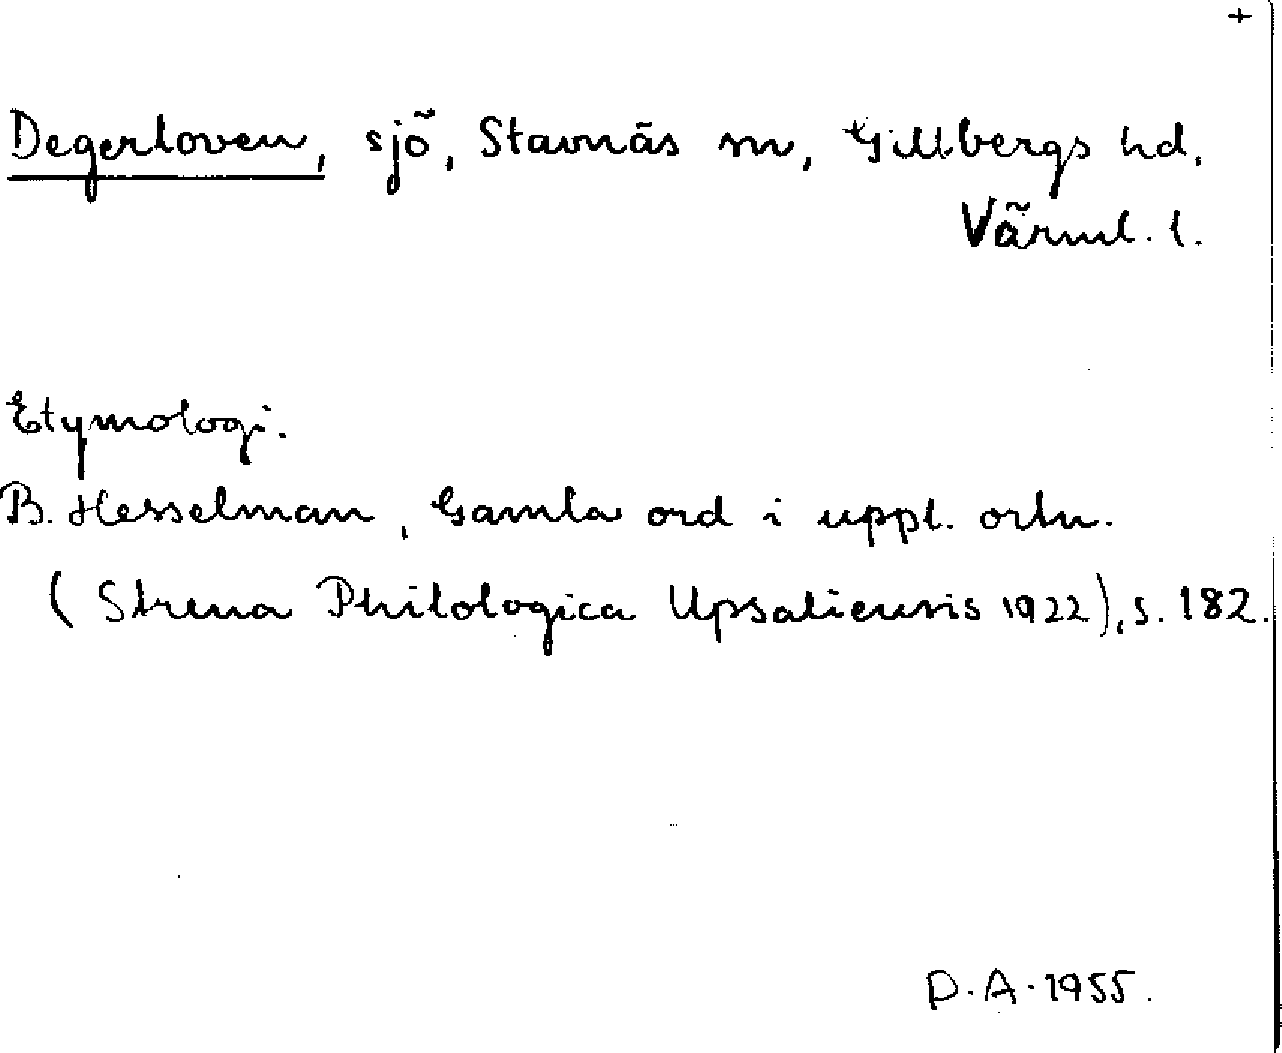 +
Degerloven, sjö, Stavnäs sn, Gillbergs hd,
Värml. l.
Etymologi.
B. Hesselman, Gamla ord i uppl. ortn.
(Strena Philologica Upsaliensis 1922), s. 182.
D. A. 1955.